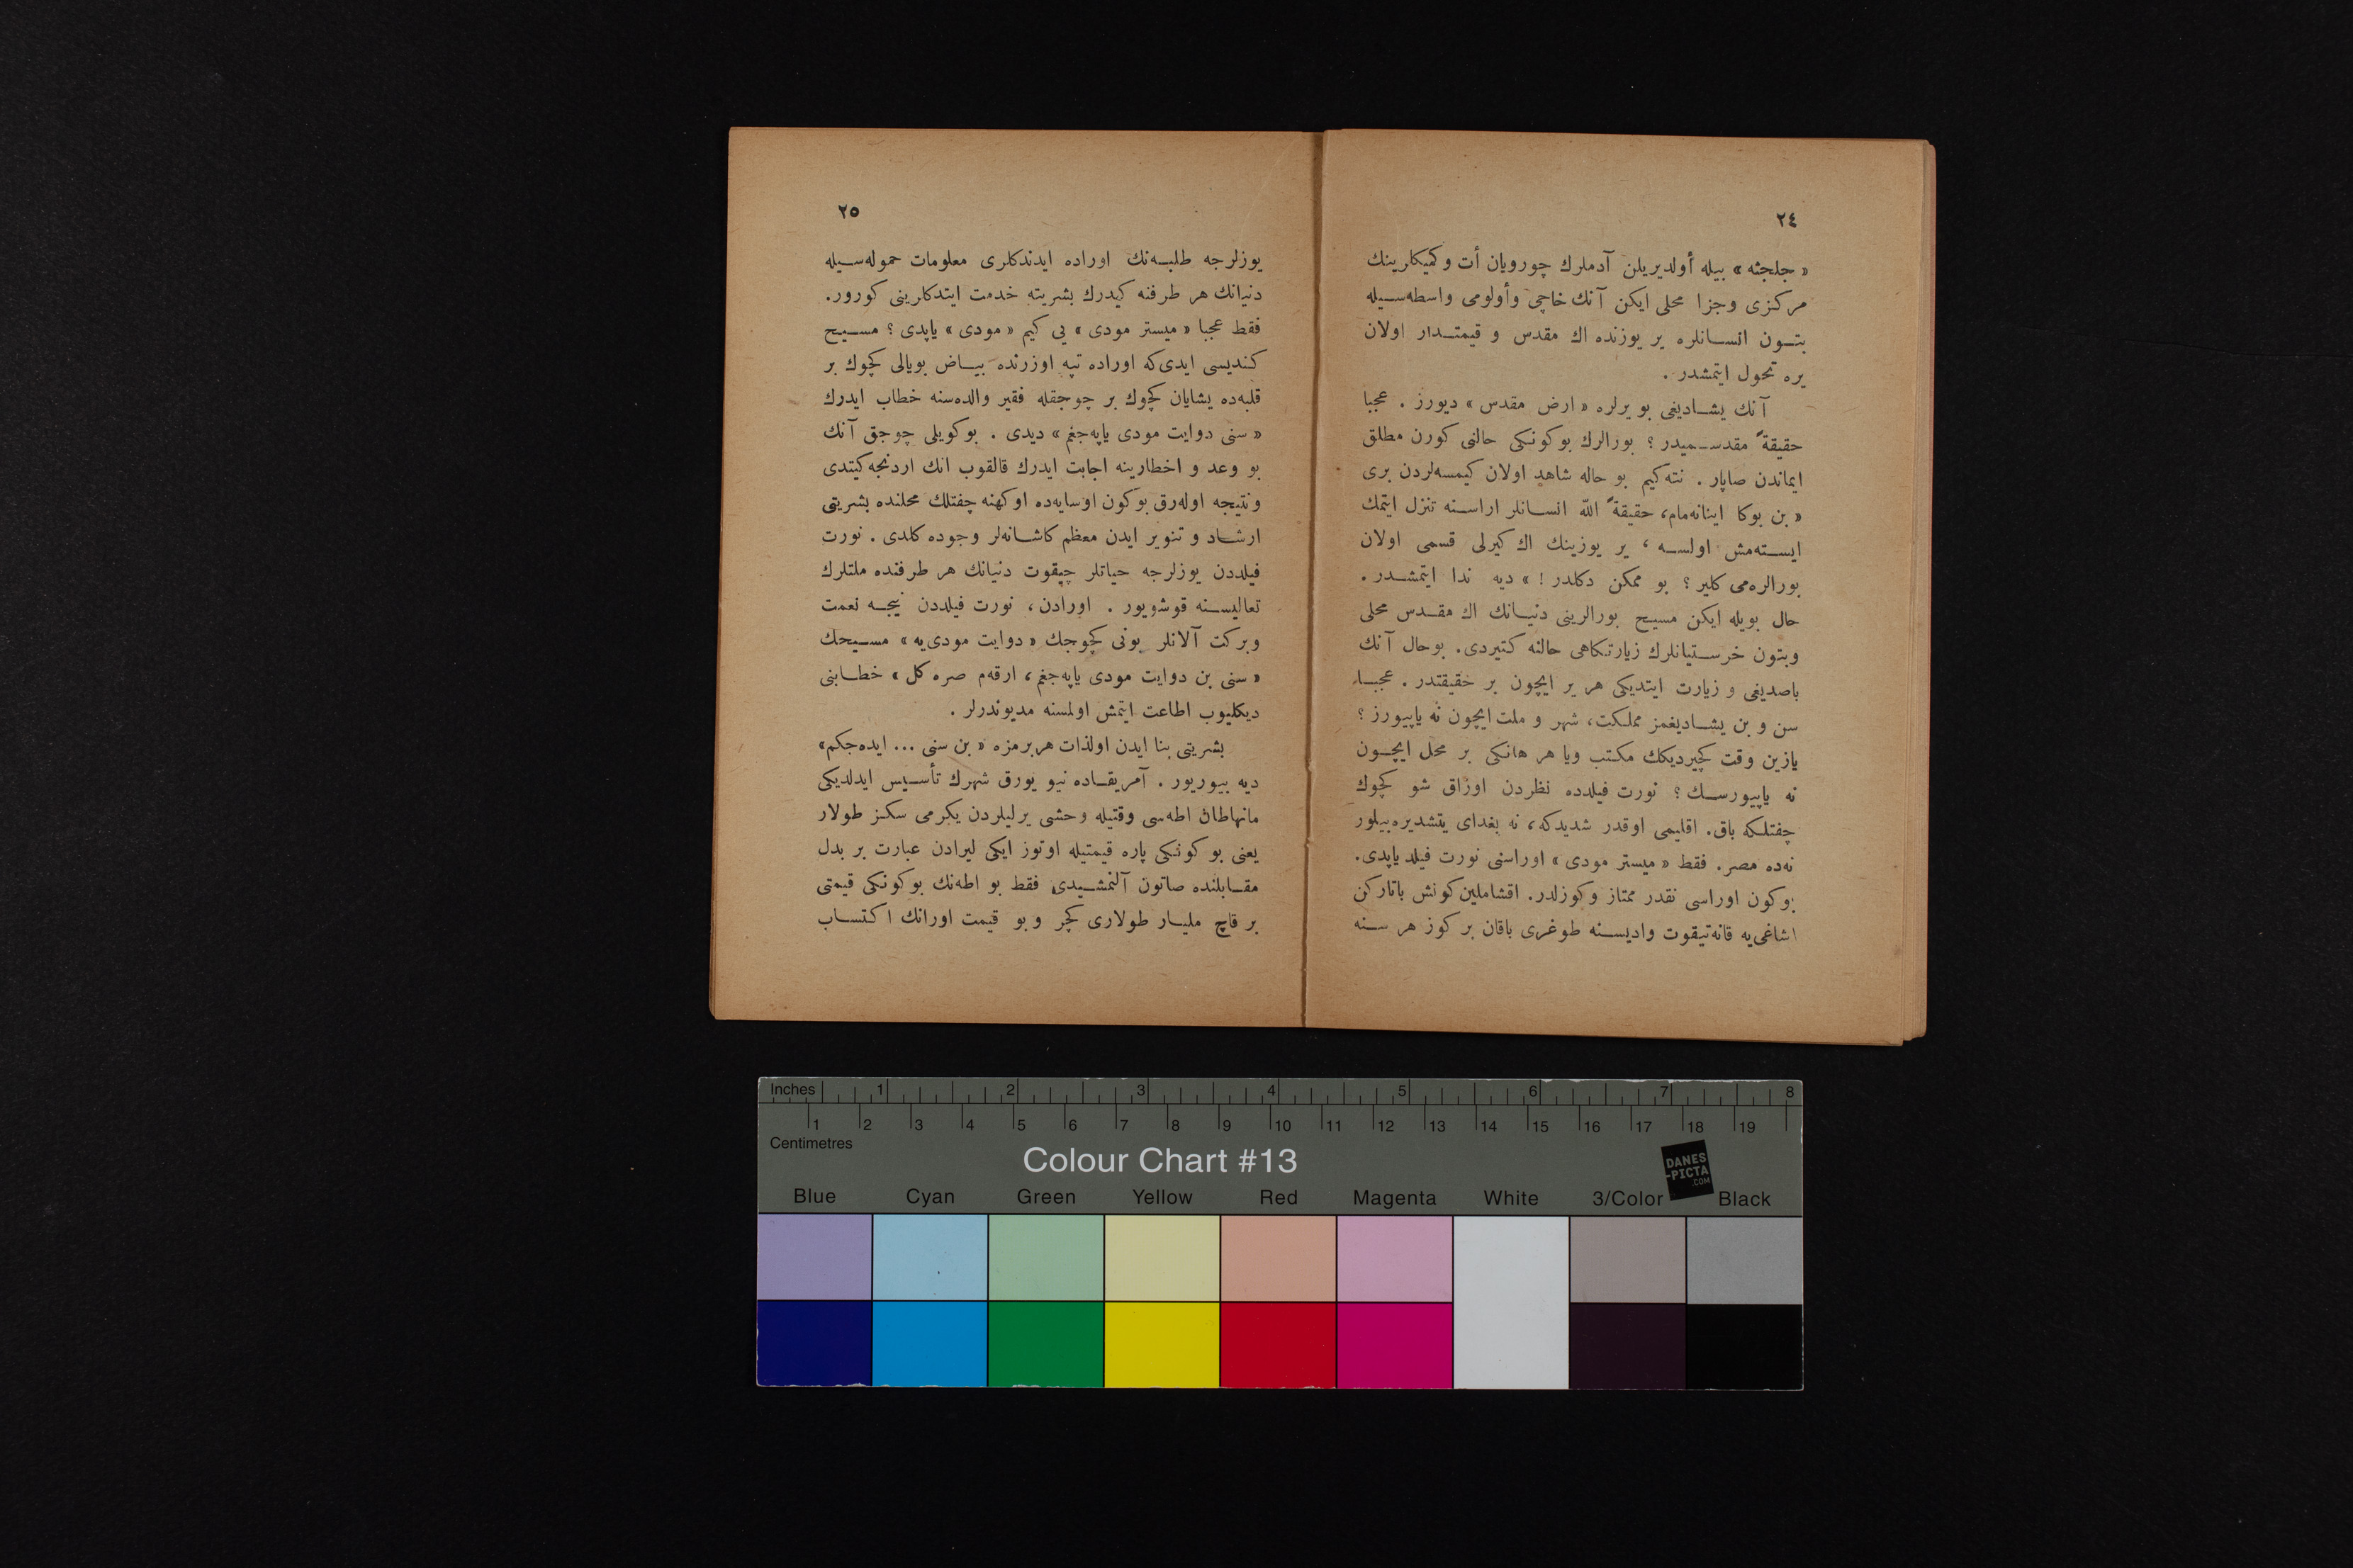 ٢٤
« جلجثه » بيله أولديريلن آدملرك چورويان أت وكميكلرينك
مركزى وجزا محلى ايكن آنك خاچى وأولومى واسطه‌سـيله
بتـون انسـانلره ير يوزنده اك مقدس و قيمتـدار اولان
يره تحول ايتمشدر .
آنك يشـاديغى بو يرلره « ارض مقدس » ديورز . عجبا
حقيقةً مقدسـميدر ؟ بورالرك بوكونكى حالنى كورن مطلق
ايماندن صاپار . نته‌كيم بو حاله شاهد اولان كيمسه‌لردن برى
« بن بوكا اينانه‌مام، حقيقةً الله انسـانلر اراسـنه تنزل ايتمك
ايسـته‌مش اولسـه ، ير يوزينك اك كيرلى قسمى اولان
بورالره‌مى كلير ؟ بو ممكن دكلدر ! » ديه ندا ايتمشـدر .
حال بويله ايكن مسيح بورالرينى دنيـانك اك مقـدس محلى
وبتون خرسـتيانلرك زيارتكاهى حالنه كتيردى. بوحال آنك
باصديغى و زيارت ايتديكى هر ير ايچون بر حقيقتدر . عجبـا
سن و بن يشـاديغمز مملكت، شهر و ملت ايچون نه ياپيورز ؟
يازين وقت كچيرديكك مكتب ويا هر هانكى بر محل ايچـون
نه ياپيورسـك ؟ نورت فيلدده نظردن اوزاق شو كچوك
چفتلـكه باق. اقليمى اوقدر شديدكه، نه بغداى يتشديره‌بيلور
نه‌ده مصر. فقط « ميستر مودى » اوراسنى نورت فيلد ياپدى.
بوكون اوراسى نقدر ممتاز وكوزلدر. اقشاملين كونش باتاركن
اشاغى‌يه قانه‌تيقوت واديسـنه طوغرى باقان بر كوز هر سـنه
٢٥
يوزلرجه طلبـه‌نك اوراده ايدندكلرى معلومات حموله‌سـيله
دنيانك هر طرفنه كيدرك بشريته خدمت ايتدكلرينى كورور.
فقط عجبا « ميستر مودى » يى كيم « مودى » ياپدى ؟ مسـيح
كنديسى ايدى‌كه اوراده تپه اوزرنده بيـاض بويالى كچوك بر
قلبه‌ده يشايان كچوك بر چوجقله فقير والده‌سنه خطاب ايدرك
« سنى دوايت مودى ياپه‌جغم » ديدى . بوكويلى چوجق آنك
بو وعد و اخطارينه اجابت ايدرك قالقوب انك اردنجه‌كيتدى
ونتيجه اوله‌رق بوكون اوسايه‌ده اوكهنه چفتلك محلنده بشريتى
ارشـاد و تنوير ايدن معظم كاشـانه‌لر وجوده كلدى . نورت
فيلددن يوزلرجه حياتلر چيقوت دنيانك هر طرفنده ملتلرك
تعاليسـنه قوشويور . اورادن، نورت فيلددن نيجـه نعمت
وبركت آلانلر بونى كچوجك « دوايت مودى‌يه » مسـيحك
« سنى بن دوايت مودى ياپه‌جغم ، ارقه‌م صره كل » خطـابنى
ديكليوب اطاعت ايتمش اولمسنه مديوندرلر .
بشريتى بنا ايدن اولذات هربرمزه « بن سنى ... ايده‌جكم»
ديه بيوريور . آمريقـاده نيو يورق شهرك تأسـيس ايدلديكى
مانهاطان اطه‌سى وقتيله وحشى يرليلردن يكرمى سكـز طولار
يعنى بو كونكى پاره قيمتيله اوتوز ايكى ليرادن عبارت بر بدل
مقـابلنده صاتون آلنمشـيدى فقط بو اطه‌نك بوكونكى قيمتى
بر قاچ مليـار طولارى كچر وبو قيمت اورانك اكتسـاب
Inches 1 2 3 4 5 6 7 8
1 2 3 4 5 6 7 8 9 10 11 12 13 14 15 16 17 18 19
Centimetres
Colour Chart #13
DANES
-PICTA
.COM
Blue Cyan Green Yellow Red Magenta White 3/Color Black